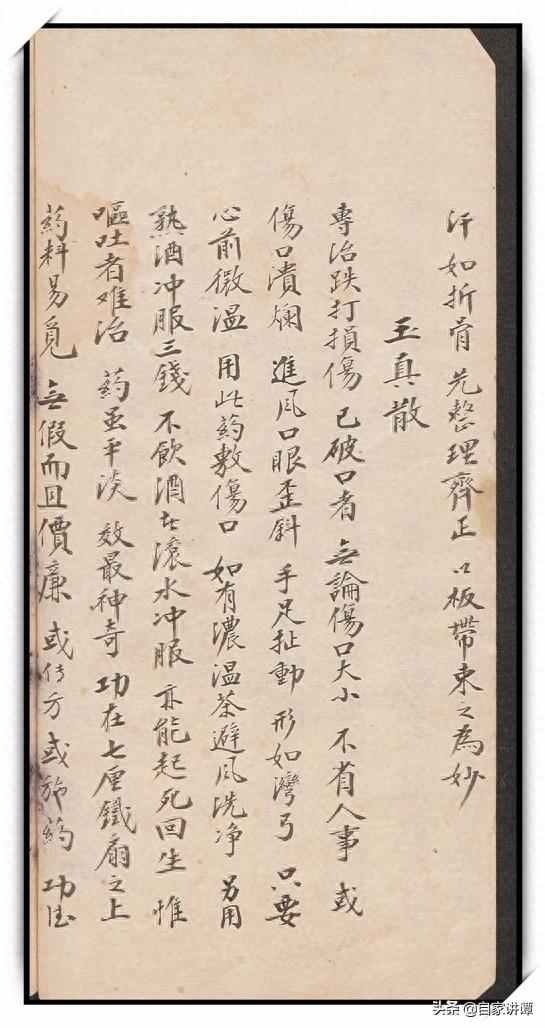 汗如折骨 先整理齊正 以板帶束之為妙
玉真散
專治跌打損傷 已破口者 無論傷口大小 不省人事 或
傷口潰爛 進風口眼歪斜 手足扯動 形如灣弓 只要
心前微溫 用此药敷傷口 如有濃溫茶避風洗净 另用
熱酒冲服三錢 不飲酒者滾水冲服 亦能起死回生 惟
嘔吐者难治 药虽平淡 效最神奇 功在七厘鐵扇之上
药料易覓 無假而且價廉 或传方或施药 功德
头条 @自家讲谭